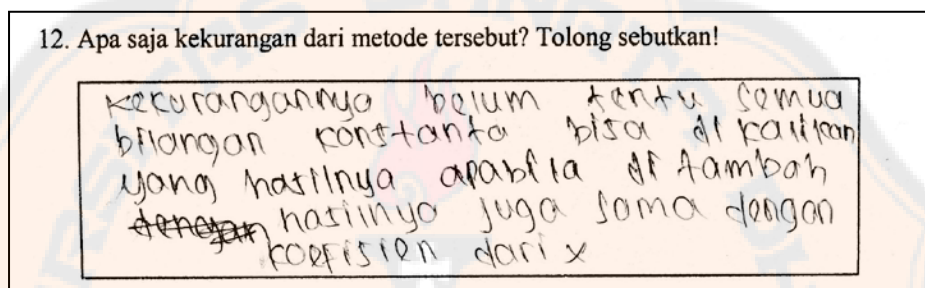 12. Apa saja kekurangan dari metode tersebut? Tolong sebutkan!
kekurangannya belum tentu semua
bilangan konstanta bisa di kalikan
yang hasilnya apabila di tambah
dengan hasilnya juga sama dengan
koefisien dari x